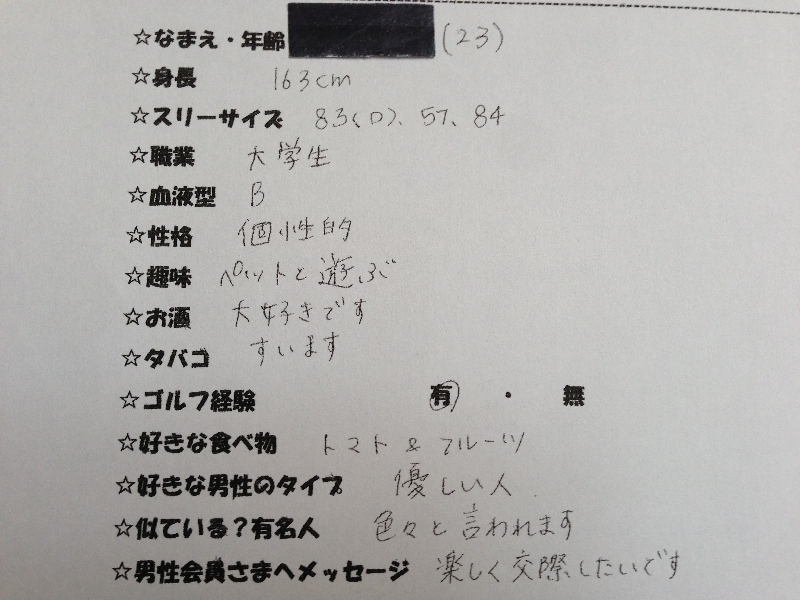 ☆なまえ・年齢 (23)
☆身長 163cm
☆スリーサイズ 83(D)、57、84
☆職業 大学生
☆血液型 B
☆性格 個性的
☆趣味 ペットと遊ぶ
☆お酒 大好きです
☆タバコ すいます
☆ゴルフ経験 有 ・ 無
☆好きな食べ物 トマト & フルーツ
☆好きな男性のタイプ 優しい人
☆似ている?有名人 色々と言われます
☆男性会員さまへメッセージ 楽しく交際したいです